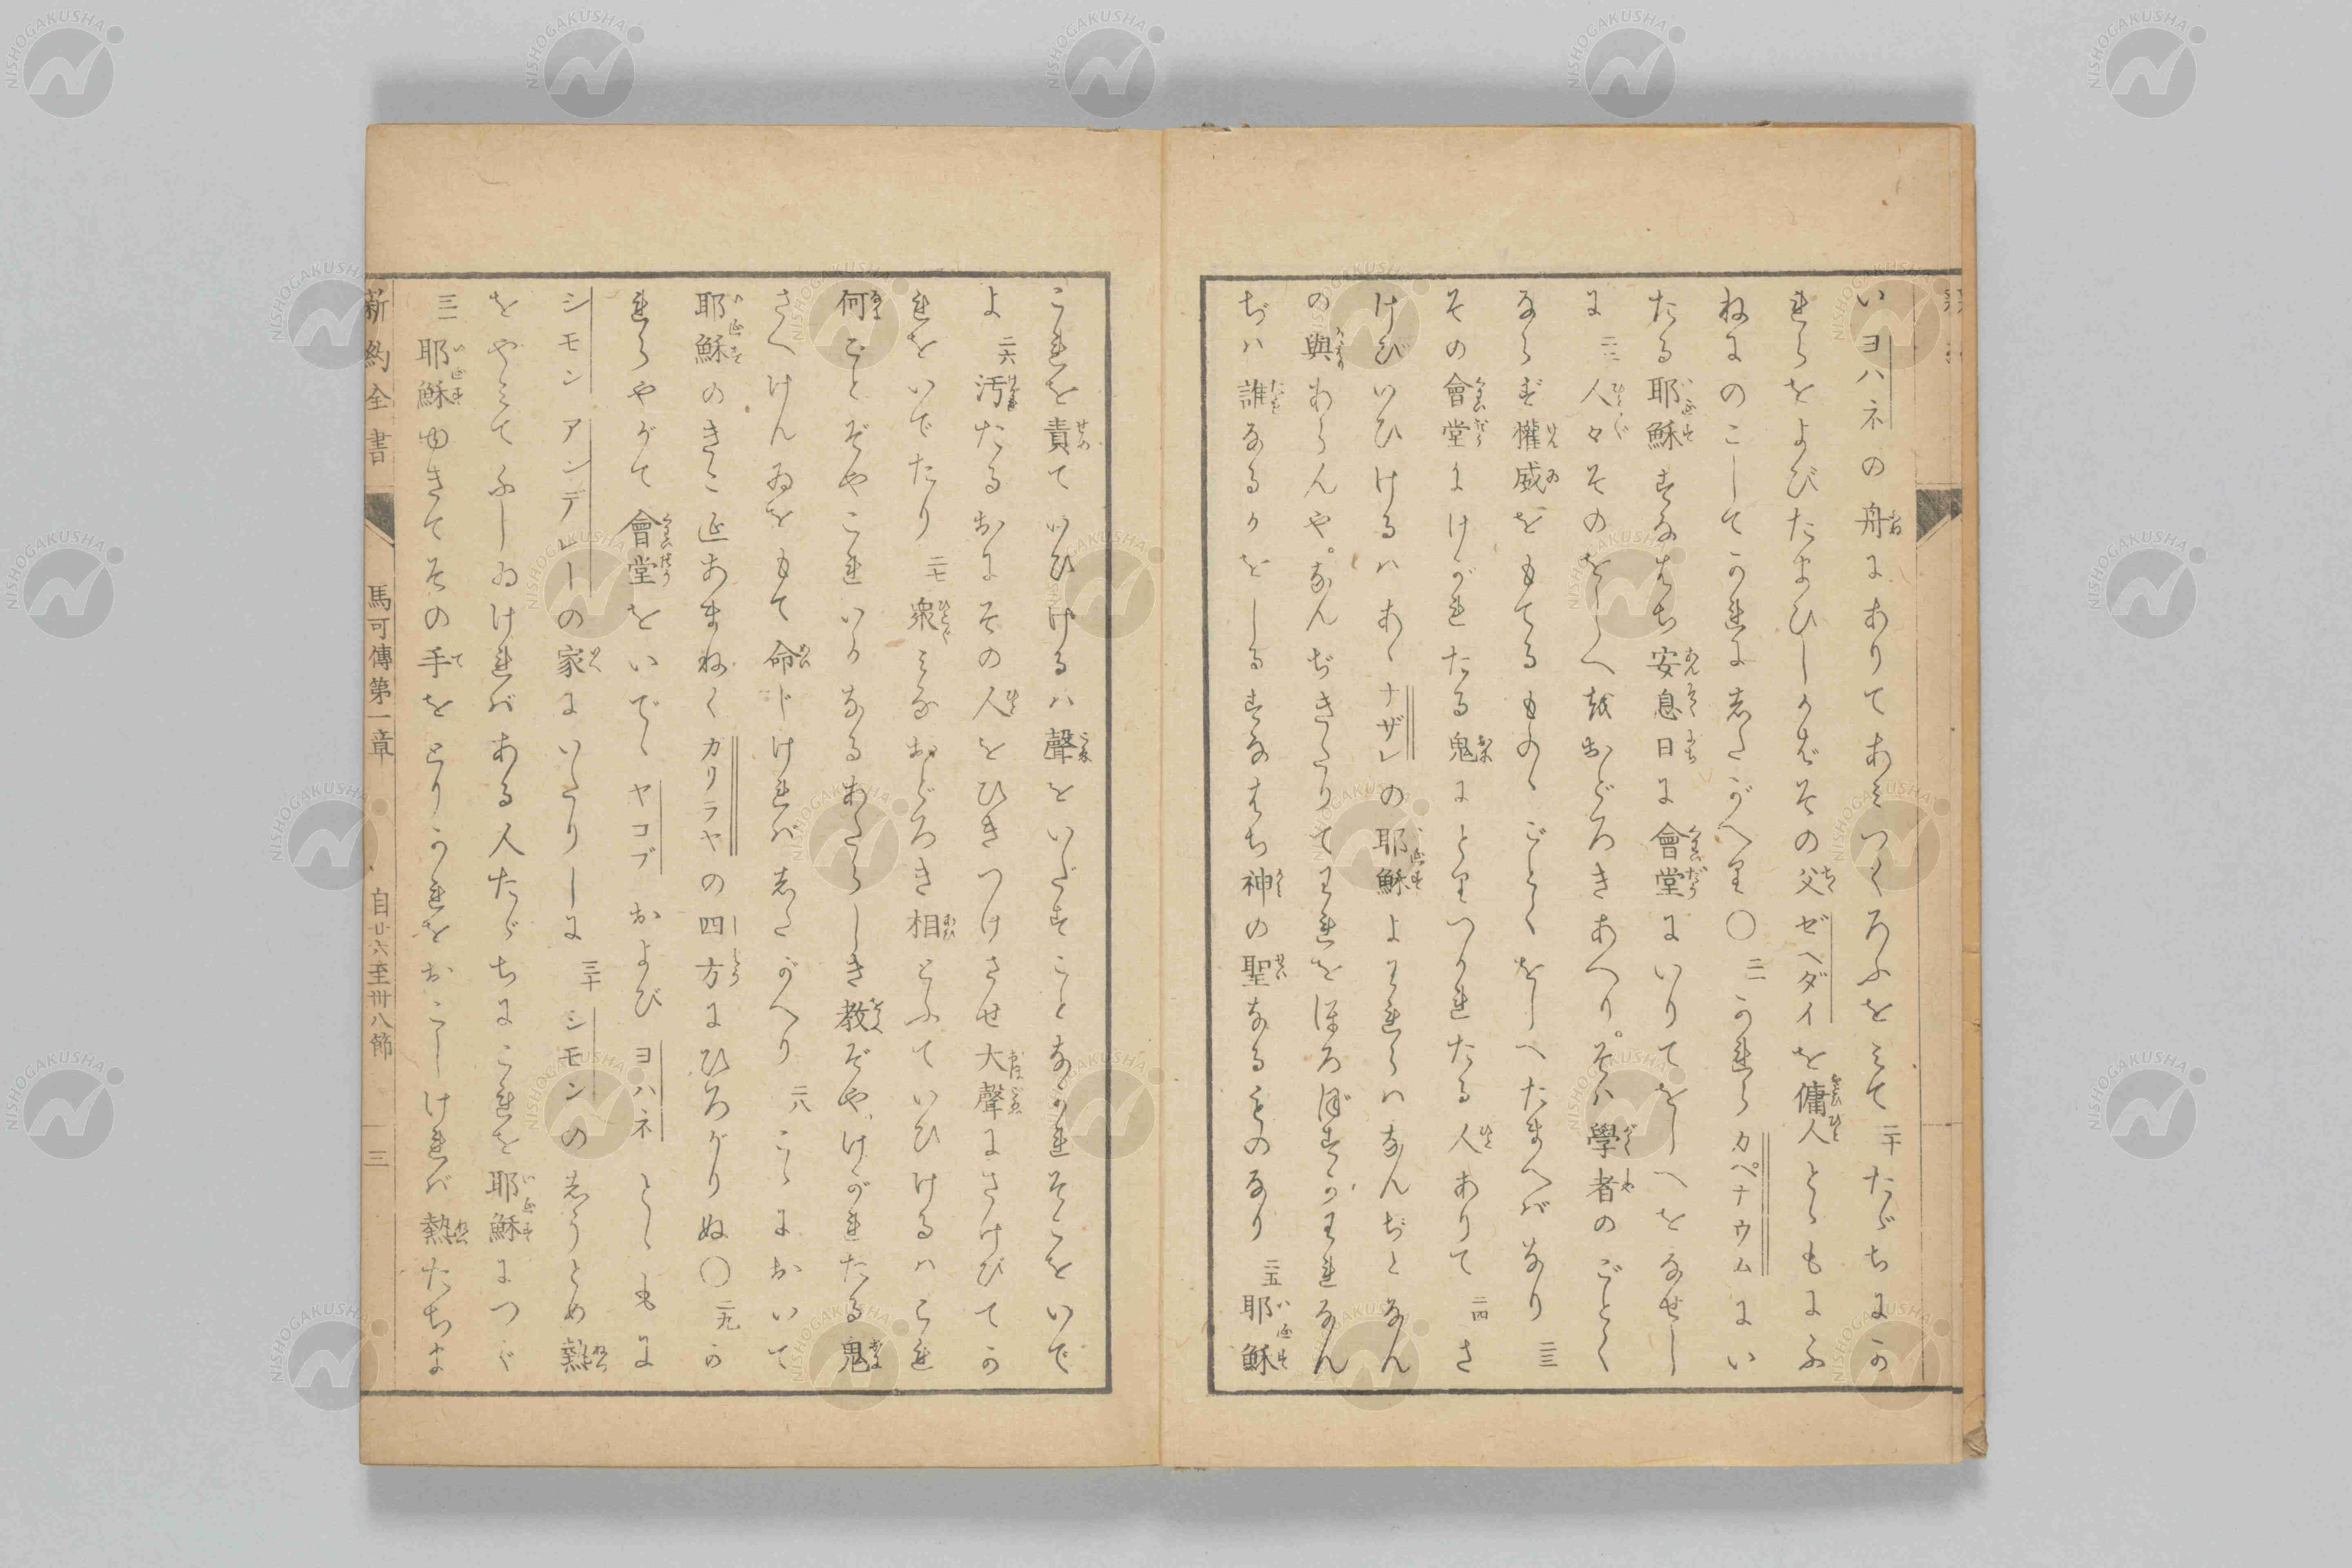 いヨハネの舟にありてあみつくろふをみて 二十 たゞちにか
れらをよびたまひしかばその父ゼベダイを傭人とゝもにふ
ねにのこしてかれにしたがへり〇 二一 かれらカペナウムにい
たる耶穌すなはち安息日に會堂にいりてをしへをなせし
に 二二 人々そのをしへにおどろきあへり。そハ學者のごとく
ならず權威をもてるものゝごとくをしへたまへバなり 二三
その會堂にけがれたる鬼にとりつかれたる人ありて 二四 さ
けびいひけるハあゝナザレの耶穌よわれらハなんぢとなん
の與あらんや。なんぢきたりてわれをほろぼすかわれなん
ぢハ誰なるかをしるすなはち神の聖なるものなり 二五 耶穌
これを責ていひけるハ聲をいだすことなかれそこをいで
よ 二六 汚たるおにその人をひきつけさせ大聲にさけびてか
れをいでたり 二七 衆みなおどろき相とふていひけるハこれ
何ことぞやこれいかなるあたらしき教ぞや、けがれたる鬼
さへけんゐをもて命じけれバしたがへり 二八 こゝにおいて
耶穌のきこえあまねくカリラヤの四方にひろがりぬ〇 二九 か
れらやがて會堂をいでゝヤコブおよびヨハネとゝもに
シモンアンデレーの家にいたりしに 三十 シモンのしうとめ熱
をやみてふしゐけれバある人たゞちにこれを耶穌につぐ
三一 耶穌ゆきてその手をとりかれをおこしけれバ熱たちま
新約全書 馬可傳第一章 自廿六至卅八節 三